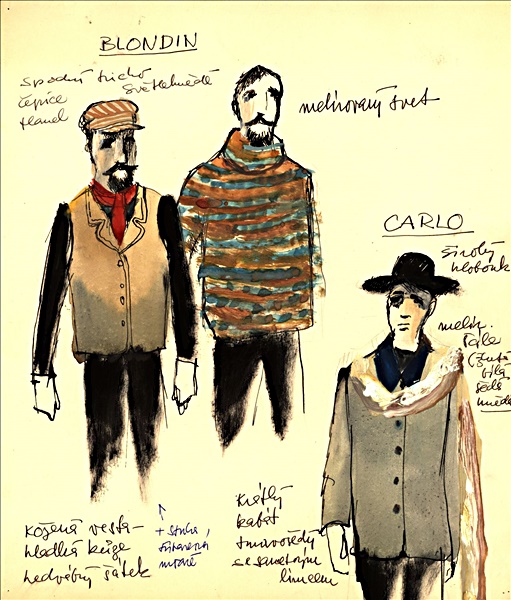 BLONDIN
Spodní tričko
Světlehnědé
čepice
flanel
melírovaný svet
CARLO
široký
klobouk
melír.
šále
(žlutá
bílá
šedá
hnědá
kožená vesta-
hladká kůže
hedvábný šátek
+
modré
krátký
kabát
tmavošedý
se sametovým
límcem